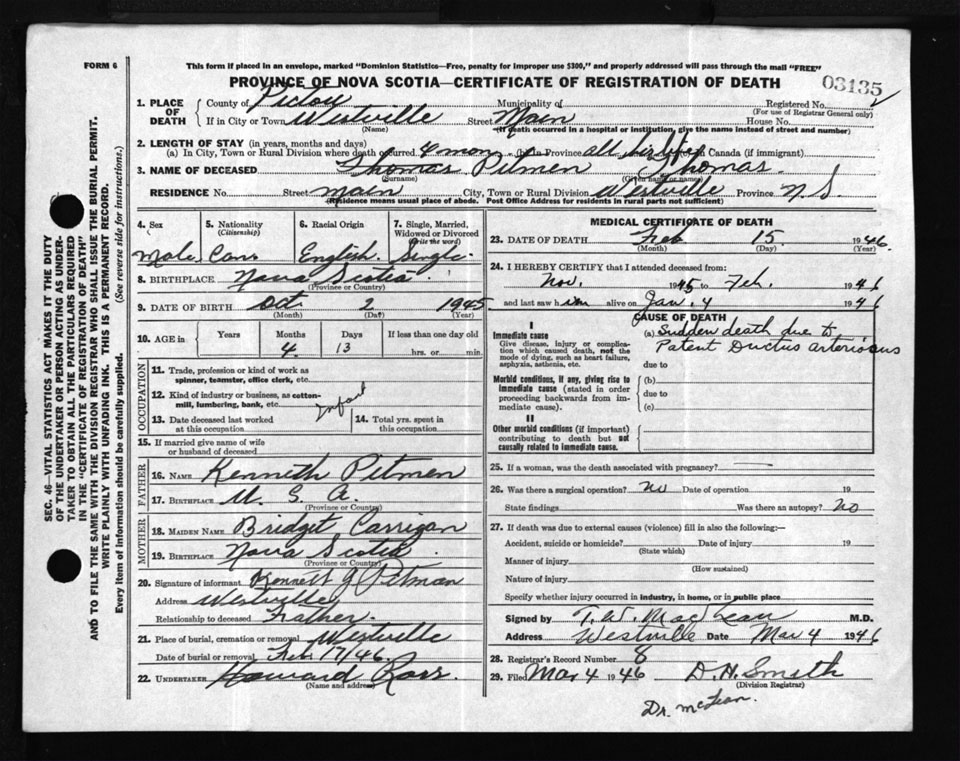 FORM 6
This form if placed in an envelope, marked "Dominion Statistics—Free, penalty for improper use $300," and properly addressed will pass through the mail "FREE"
PROVINCE OF NOVA SCOTIA—CERTIFICATE OF REGISTRATION OF DEATH
03135
1. PLACE OF DEATH County of Pictou Municipality of Registered No.
(For use of Registrar General only)
If in City or Town Westville Street Main House No.
(Name) (If death occurred in a hospital or institution, give the name instead of street and number)
2. LENGTH OF STAY (in years, months and days)
(a) In City, Town or Rural Division where death occurred 4 mon. (b) in Province all his life in Canada (if immigrant)
3. NAME OF DECEASED Thomas Pitmen Thomas
(Surname) (Given name or names)
RESIDENCE No. Street Main City, Town or Rural Division Westville Province N S.
(Residence means usual place of abode. Post Office Address for residents in rural parts not sufficient)
4. Sex 5. Nationality (Citizenship) 6. Racial Origin 7. Single, Married, Widowed or Divorced (Write the word)
Male Can English Single
8. BIRTHPLACE Nova Scotia
(Province or Country)
9. DATE OF BIRTH Oct 2 1945
(Month) (Day) (Year)
10. AGE in Years Months Days If less than one day old
4 13 hrs. or min.
OCCUPATION
11. Trade, profession or kind of work as spinner, teamster, office clerk, etc.
12. Kind of industry or business, as cotton-mill, lumbering, bank, etc. Infant
13. Date deceased last worked at this occupation 14. Total yrs. spent in this occupation
15. If married give name of wife or husband of deceased
FATHER
16. NAME Kenneth Pitmen
17. BIRTHPLACE U. S. A.
(Province or Country)
MOTHER
18. MAIDEN NAME Bridget Carrigan
19. BIRTHPLACE Nova Scotia
(Province or Country)
20. Signature of informant Kennett J Pitman
Address Westville
Relationship to deceased Father.
21. Place of burial, cremation or removal Westville
Date of burial or removal Feb 17/46.
22. UNDERTAKER Howard Ross.
(Name and address)
MEDICAL CERTIFICATE OF DEATH
23. DATE OF DEATH Feb 15. 1946.
(Month) (Day) (Year)
24. I HEREBY CERTIFY that I attended deceased from:
Nov. 1945 to Feb. 1946
and last saw him alive on Jan. 4 1946
CAUSE OF DEATH
I
Immediate cause
Give disease, injury or complication which caused death, not the mode of dying, such as heart failure, asphyxia, asthenia, etc.
(a) Sudden death due to
Patent Ductus arteriosus
due to
Morbid conditions, if any, giving rise to immediate cause (stated in order proceeding backwards from immediate cause).
(b)
due to
(c)
II
Other morbid conditions (if important) contributing to death but not causally related to immediate cause.
25. If a woman, was the death associated with pregnancy?
26. Was there a surgical operation? No Date of operation 19
State findings Was there an autopsy? No
27. If death was due to external causes (violence) fill in also the following:—
Accident, suicide or homicide? Date of injury 19
(State which)
Manner of injury
(How sustained)
Nature of injury
Specify whether injury occurred in industry, in home, or in public place
Signed by T. W. MacLean M.D.
Address Westville Date Mar 4 1946
28. Registrar's Record Number 8
29. Filed Mar 4 1946 D. H. Smith
(Division Registrar)
Dr. McLean.
SEC. 46—VITAL STATISTICS ACT MAKES IT THE DUTY
OF THE UNDERTAKER OR PERSON ACTING AS UNDER-
TAKER TO OBTAIN ALL THE PARTICULARS REQUIRED
IN THE "CERTIFICATE OF REGISTRATION OF DEATH"
AND TO FILE THE SAME WITH THE DIVISION REGISTRAR WHO SHALL ISSUE THE BURIAL PERMIT.
WRITE PLAINLY WITH UNFADING INK. THIS IS A PERMANENT RECORD.
Every item of information should be carefully supplied. (See reverse side for instructions.)